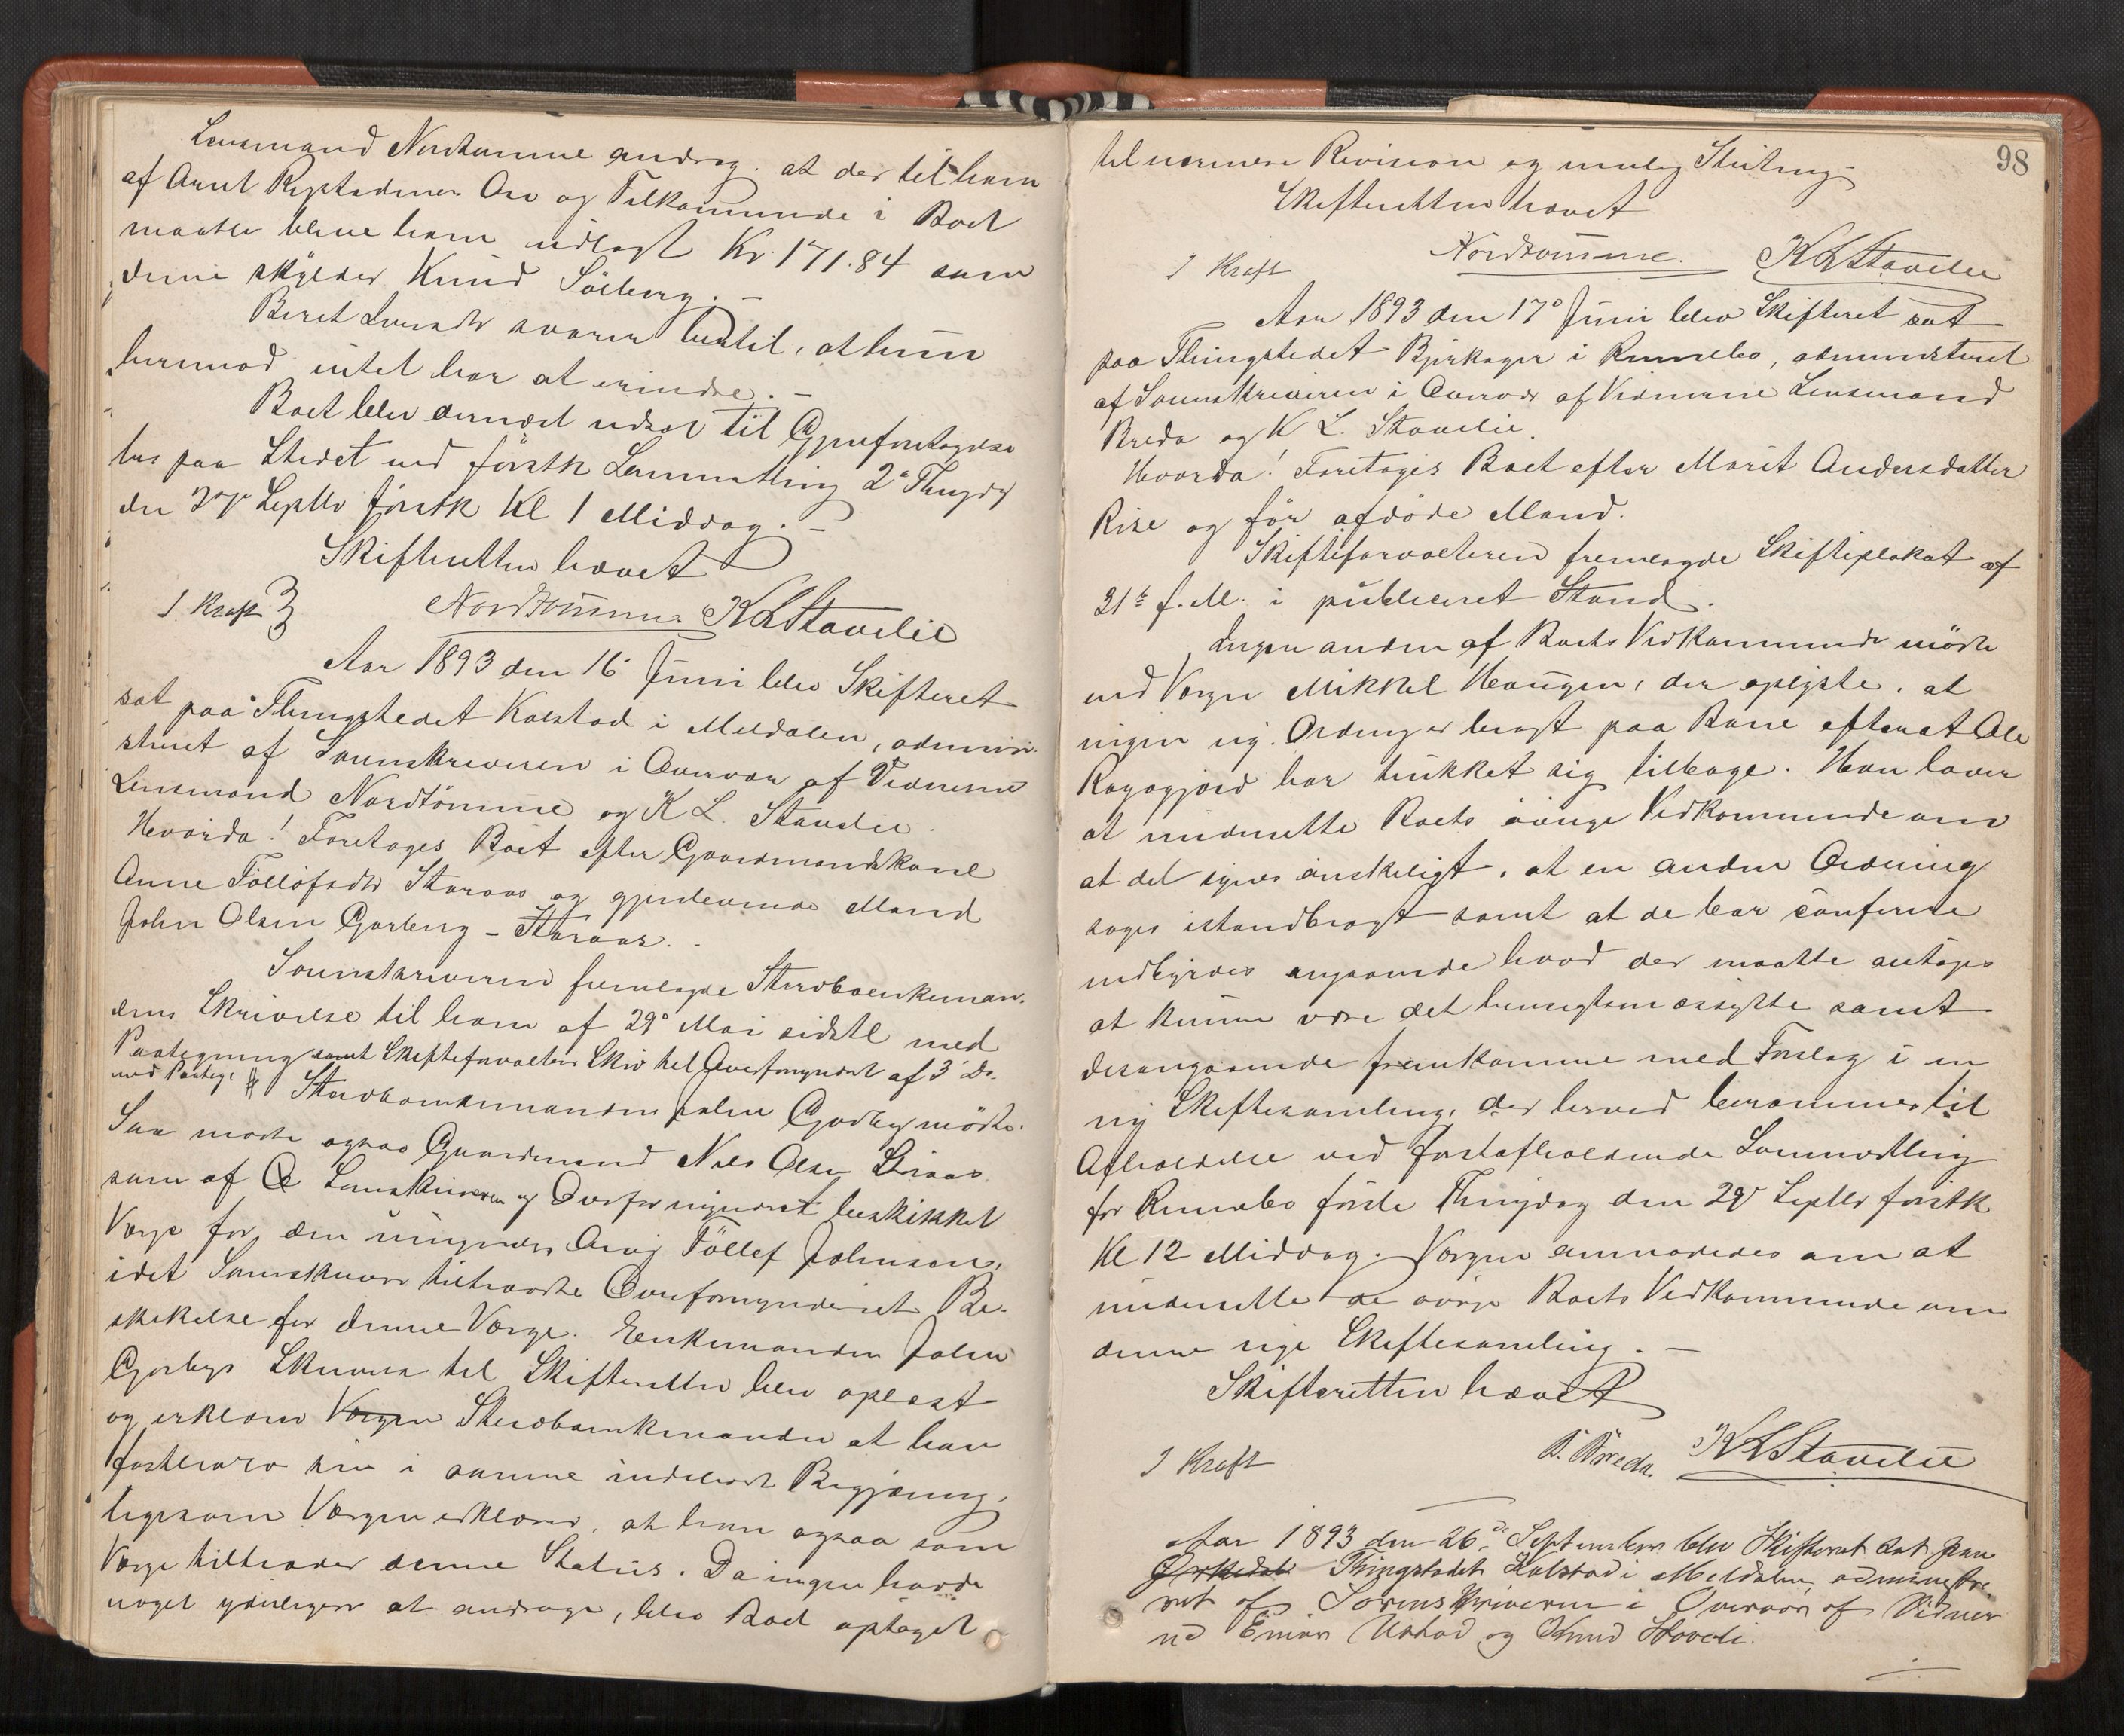 Lensmand Nordtømme androg, at der til ham
af Arnt Rigstadmoen Arv og Tilkommende i Boet
maatte blive ham udlagt Kr. 171.84 som
denne skylder Knud Söiberg. –
Beret Lversdtr svarer hertil, at hun
herimod intet har at erindre. –
Boet blev dernæst udsat til Gjenforetagelse
her paa Stedet ved förstk Sommerthing 2n Thingdag
den 27de Septbr förstk Kl 1 Middag. –
Skifteretten hævet
I. Kraft Nordtømme. K L Stavelie
Aar 1893 den 16 Juni blev Skifteret
sat paa Thingstedet Kalstad i Meldalen, admini-
streret af Sorenskriveren i Overvær af Vidnerne
Lensmand Nordtömme og K L. Stavelie.
Hvorda! Foretoges Boet efter Gaardmandskone
Anne Tollofsdtr Storaas og gjenlevende Mand
John Olsen Gorberg – Storaas. –
Sorenskriveren fremlagde Stervboenkeman-
dens Skrivelse til ham af 29de Mai sidstl med
Paategning samt Skifteforvalters Skriv til Overformynderiet af 3 Ds.
med Paateg. # Stervboenkemanden John Gorberg mödte.
Saa mødte ogsaa Gaardmand Nils Olsen
som af Sorenskriveren og Overformynderiet beskikket
Verge for den umyndige Arving Töllef Johnsen,
idet Sorenskriver tiltraadte Overformynderiets Be-
skikkelse for denne Verge. Enkemanden John
Gorbergs Skrivelse til Skifteretten blev oplæst
og erklærer Vergen Stervboenkemanden at han
fastholder sin i samme indeholdte Begjæring,
ligesom Vergen erklærer, at han ogsaa som
Verge tiltræder denne Status. Da ingen havde
noget yderligere at andrage, blev Boet optaget
98
til nærmere Revision og mulig Slutning.
Skifteretten hævet
I Kraft Nordtømme. K L Stavelie
Aar 1893 den 17de Juni blev Skifteret sat
paa Thingstedet Bjerkager i Rennebo, administreret
af Sorenskriveren i Overvær af Vidnerne Lensmand
Breda og K L. Stavelie.
Hvorda! Foretoges Boet efter Marit Andersdatter
Rise og för afdöde Mand.
Skifteforvalteren fremlagde Skifteplakat af
31te f. M. i publiceret Stand.
Ingen anden af Boets Vedkommende mödte
end Vergen Mikkel Haugen, der oplyste, at
ingen ny Ordning er bragt paa Bane efterat Ole
har trukket sig tilbage. Han lover
at underrette Boets övrige Vedkommende om
at det synes önskeligt, at en anden Ordning
søges istandbragt samt at de bör conferere
indbyrdes angaaende hvad der maatte antages
at kunne være det hensigtsmæssigste samt
desangaaende fremkomme med Forslag i en
ny Skiftesamling, der herved berammes til
Afholdelse ved förstafholdende Sommerthing
for Rennebo förste Thingdag den 29de Septbr förstk
Kl 12 Middag. Vergen anmodedes om at
underrette de övrige Boets Vedkommende om
denne nye Skiftesamling. –
Skifteretten hævet
I Kraft B. Breda. K L Stavelie
Aar 1893 den 26de September blev Skifteret sat paa
Orkedal Thingstedet Kalstad i Meldalen, administre-
ret af Sorenskriveren i Overvær af Vidner-
ne Einar Ustad og Knud Hoveli.